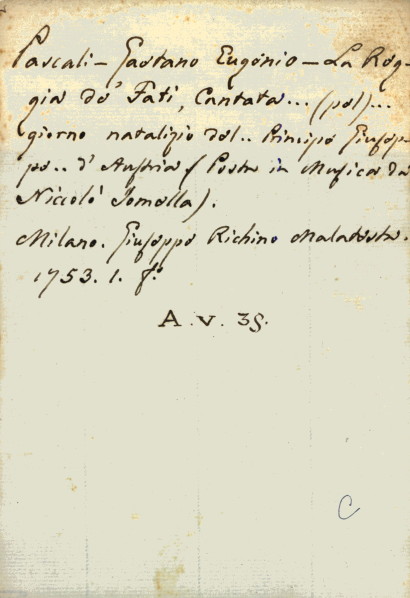 Pascali - Gaetano Eugenio - La Reg-
gia de' Fati, Cantata... (pel)...
giorno natalizio del.. Principe Giusep-
pe.. d'Austria (Posta in Musica da
Niccolò Jomella).
Milano. Giuseppe Richino Malatesta.
1753. 1. fo
A. V. 39.
C